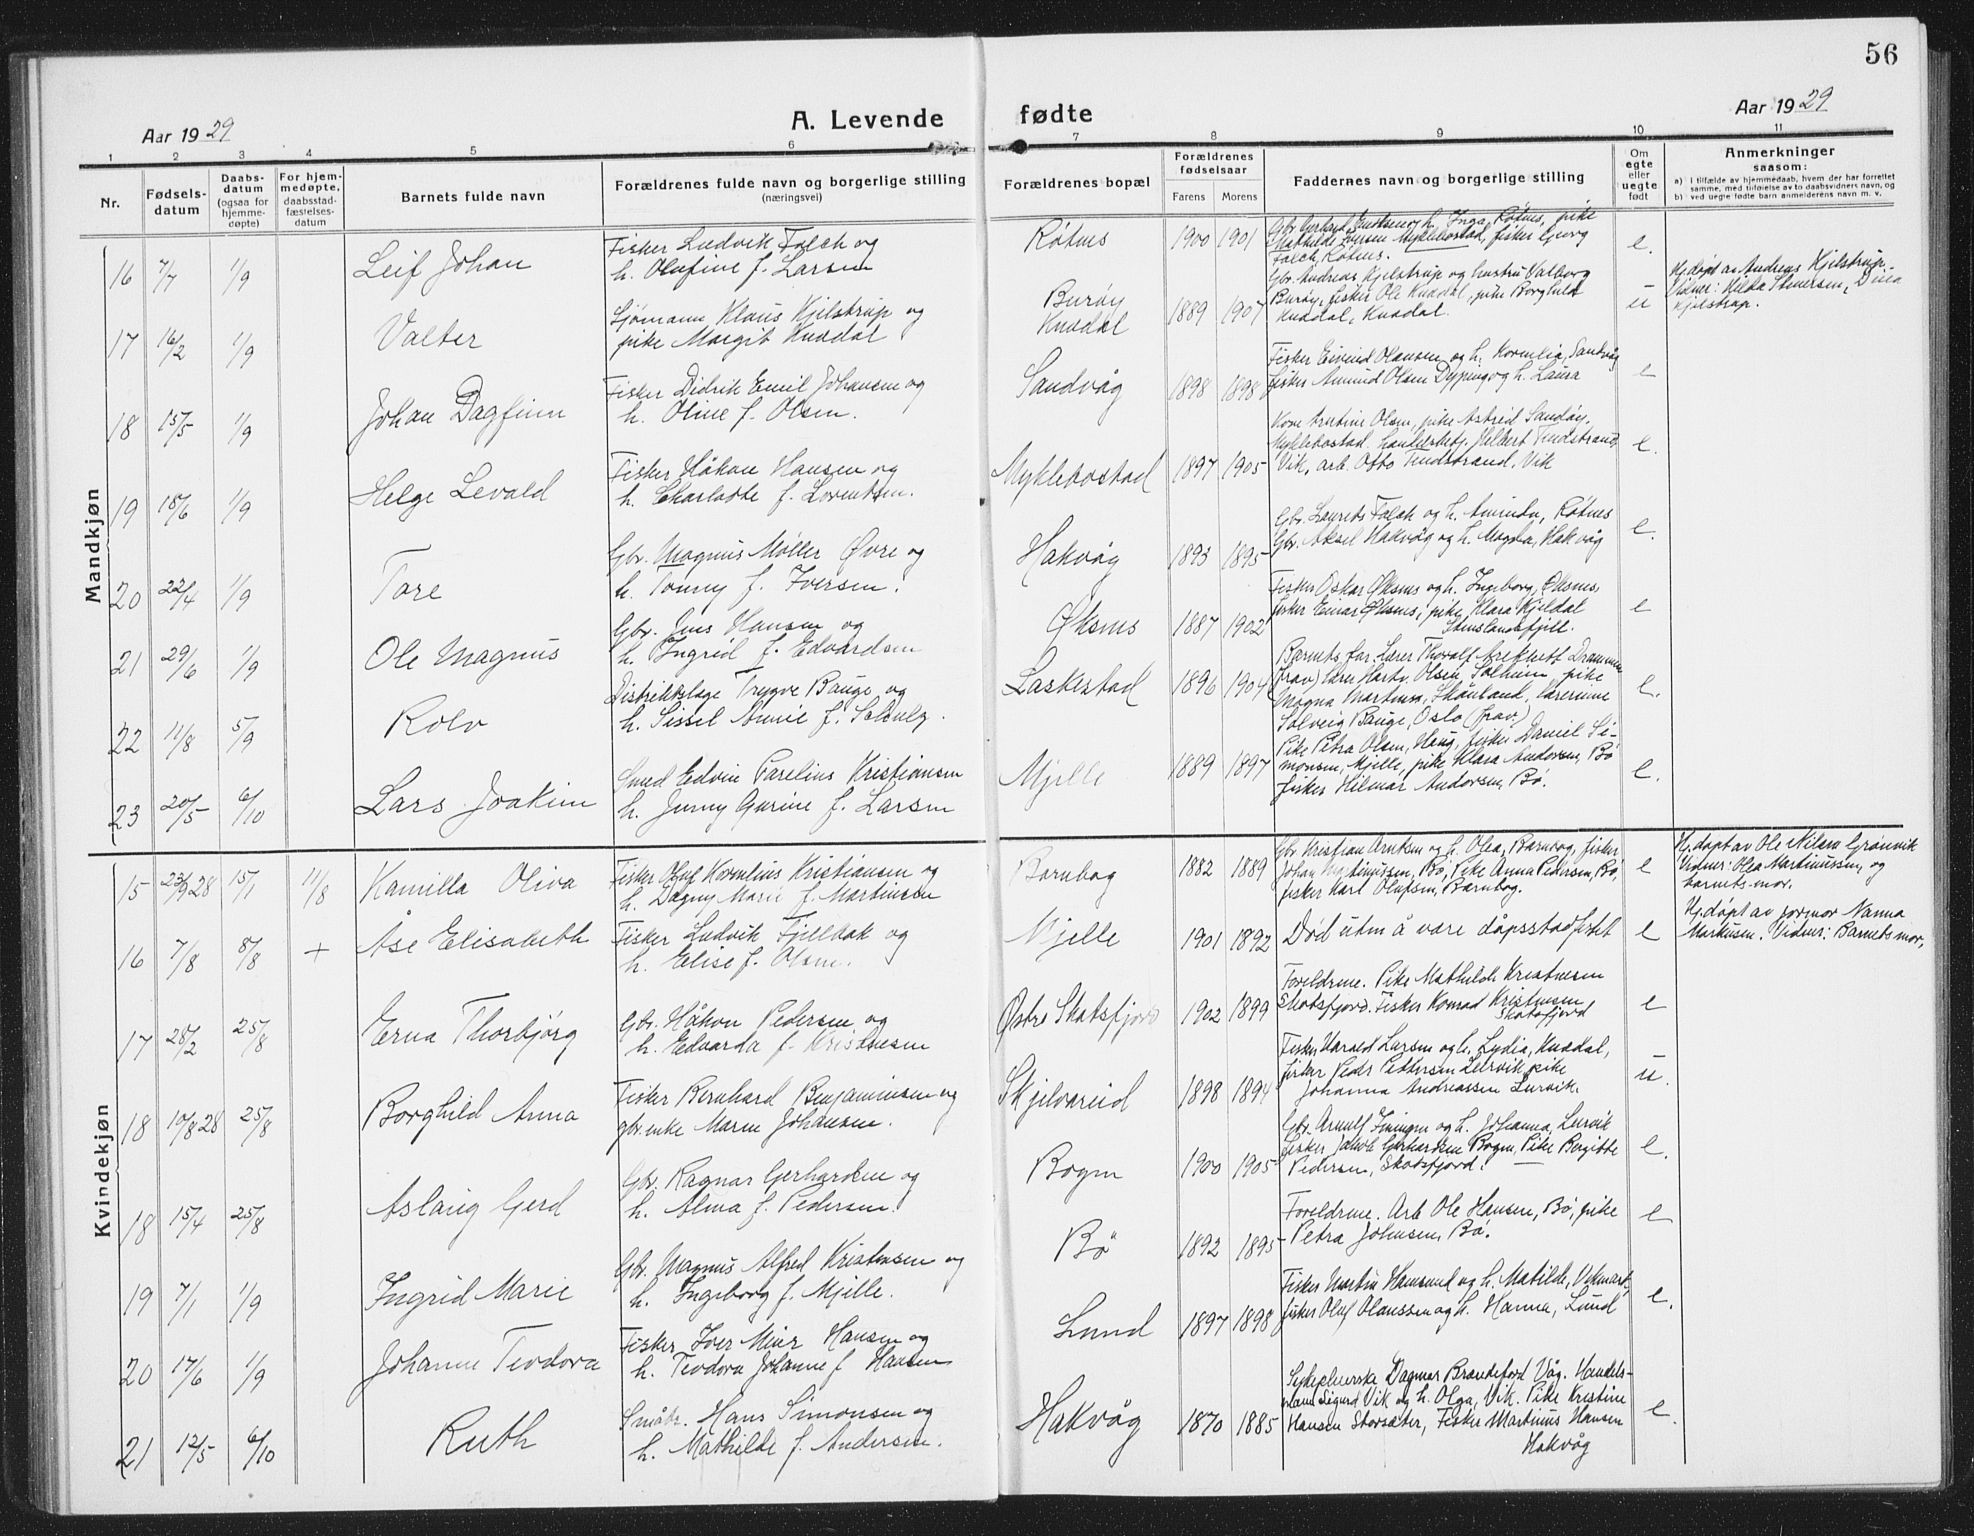 56
Aar 1929
A. Levende fødte
Aar 1929
1 2 3 4 5 6 7 8 9 10 11
Nr.
Fødsels-
datum
Daabs-
datum
(ogsaa for
hjemme-
døpte)
For hjem-
medøpte,
daabsstad-
fæstelses-
datum
Barnets fulde navn
Forældrenes fulde navn og borgerlige stilling
(næringsvei)
Forældrenes bopæl
Forældrenes
fødselsaar
Farens Morens
Faddernes navn og borgerlige stilling
Om
egte
eller
uegte
født
Anmerkninger
saasom:
a) I tilfælde av hjemmedaab, hvem der har forrettet
samme, med tilføielse av to daabsvidners navn, og
b) ved uegte fødte barn anmelderens navn m. v.
Mandkjøn
16 7/7 1/9 Leif Johan
Fisker Ludvik Falch og
h. Olufine f. Larsen
Røtnes 1900 1901
Mathilde Iversen Myklebostad, fisker Georg
Falch, Røtnes.
e.
17 16/2 1/9 Valter
Sjømann Klaus Kjelstrup og
pike Margit Knædal
Burøy
Knædal
1889 1907
Gbr. Andreas Kjelstrup og hustru Valborg
Burøy, fisker Ole Knædal, pike Borghild
Knædal, Knædal.
u
Hj.døpt av Andreas Kjelstrup.
Vidner: Helka Stenersen, Dina
Kjelstrup.
18 15/5 1/9 Johan Dagfinn
Fisker Didrik Emil Johansen og
h. Oline f. Olsen.
Sandvåg 1898 1898
Fisker Eivind Olausen og h. Kornelia, Sandvåg
fisker Amund Olsen Dyping og h. Laura
e
19 18/6 1/9 Helge Levald
Fisker Håkon Hansen og
h. Charlotte f. Lorentsen.
Myklebostad 1897 1905
Kone Arntine Olsen, pike Astrid Sandøy.
Myklebostad. handelsbetj. Helbert Tindstrand,
Vik, arb. Otto Tindstrand, Vik
e.
20 22/4 1/9 Tore
Gbr. Magnus Møller Øvre og
h. Tonny f. Iversen.
Hakvåg 1893 1895
Gbr. Laurits Falch og h. Aminda, Røtnes
Gbr. Aksel Hakvåg og h. Magda, Hakvåg
e.
21 29/6 1/9 Ole Magnus
Gbr. Jens Hansen og
h. Ingrid f. Edvardsen
Øksnes 1887 1902
Fisker Oskar Øksnes og h. Ingeborg, Øksnes,
fisker Einar Øksnes, pike Klara Kjeldal
Stenslandsfjell.
e
22 11/8 5/9 Rolv
Distriktslæge Trygve Bauge og
h. Sissel Annie f.
Laskestad 1896 1904
Barnets far. Lærer Thoralf Drammen
(frav) Lærer Hartv. Olsen, Solheim, pike
Magna Martinus, Skånland, lærerinne
Solveig Bauge, Oslo (frav.)
e.
23 20/5 6/10 Lars Joakim
Smed Edvin Parelius Kristiansen
h. Jenny Gurine f. Larsen
Mjelle 1889 1897
Pike Petra Olsen, Haug, fisker Daniel Si-
monsen, Mjelle, pike Klara Andersen, Bø
fisker Hilmar Andersen, Bø.
e.
Kvindekjøn
15 23/9 28 15/1 11/8 Kamilla Oliva
Fisker Oluf Kornelius Kristiansen og
h. Dagny Marie f. Martinsen
Bornbog 1882 1889
Gbr. Kristian Arntsen og h. Olea, Bornbog, fisker
Johan Martinussen, Bø, Pike Anna Pedersen, Bø,
fisker Karl Olufsen, Bornbog.
e
Hj.døpt av Ole Nilsen Grønvik
Vidner: Olea Martinussen og
barnets mor.
16 7/8 8/8 + Åse Elisabeth
Fisker Ludvik Fjelldak og
h. Elise f. Olsen.
Mjelle 1901 1892
Død uten å være dåpsstadfestet
e
Hj.døpt av jormor Nanna
Markusen. Vidner: Barnets mor,
17 28/2 25/8 Erna Thorbjørg
Gbr. Håkon Pedersen og
h. Edvarda f. Kristensen
Østre Skotsfjord 1902 1899
Foreldrene. Pike Mathilde Kristensen
Skotsfjord. Fisker Konrad Kristensen,
Skotsfjord
e
18 10/8 28 25/8 Borghild Anna
Fisker Bernhard Benjaminsen og
gbr.enke Maren Johansen.
Skjelvareid 1898 1894
Fisker Harald Larsen og h. Lydia, Knædal,
fisker Peder Pettersen Leirvik, pike
Johanna Andreassen Leirvik.
u.
18 15/4 25/8 Aslaug Gerd
Gbr. Ragnar Gerhardsen og
h. Alma f. Pedersen.
Bogen 1900 1905
Gbr. Arnulf Iningen og h. Johanna, Leirvik
fisker Jakob Gerhardsen Bogen, Pike Bergitte
Pedersen, Skotsfjord.
e.
19 7/1 1/9 Ingrid Marie
Gbr. Magnus Alfred Kristensen og
h. Ingeborg f. Mjelle.
Bø 1892 1895
Foreldrene. Arb. Ole Hansen, Bø, pike
Petra Johnsen, Bø.
e
20 17/6 1/9 Johanne Teodora
Fisker Iver Hansen og
h. Teodora Johanne f Hansen
Lund 1897 1898
Fisker Martin Hamsund og h. Matilde,
fisker Oluf Olaussen og h. Hanna, Lund
e.
21 12/5 6/10 Ruth
Småbr. Hans Simonsen og
h. Mathilde f. Andersen.
Hakvåg 1870 1885
Sykepleierske Dagmar Våg. Handels-
mann Sigurd Vik og h. Olga, Vik. Pike Kristine
Hansen Storsæter, Fisker Martinus Hansen
Hakvåg
e.